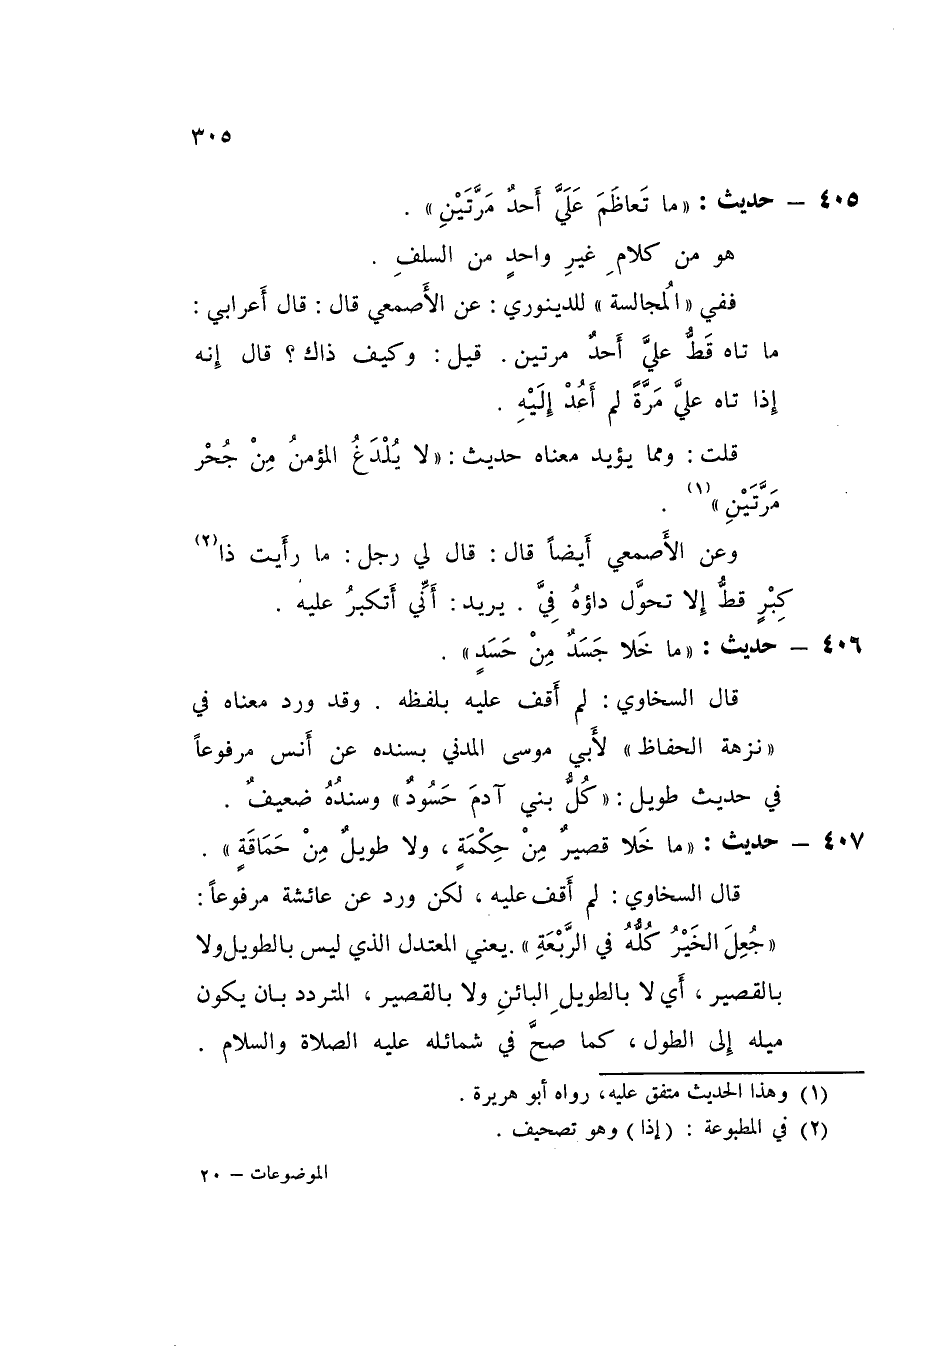 ٣٠٥
٤٠٥ – حديث : « ما تَعاظَمَ عَلَيَّ أَحدٌ مَرَّتَيْنِ » .
هو من كلامِ غيرِ واحدٍ من السلفِ .
ففي « المُجالسة » للدينوري : عن الأَصمعي قال : قال أَعرابي :
ما تاه قَطُّ عليَّ أَحدٌ مرتين . قيل : وكيف ذاك ؟ قال إِنه
إِذا تاه عليَّ مَرَّةً لم أَعُدْ إِلَيْهِ .
قلت : ومما يؤيد معناه حديث : « لا يُلْدَغُ المؤمنُ مِنْ جُحْرٍ
مَرَّتَيْنِ »(١) .
وعن الأَصمعي أَيضاً قال : قال لي رجل : ما رأَيت ذا(٢)
كِبْرٍ قطُّ إِلا تحوَّل داؤهُ فِيَّ . يريد : أَنِّي أَتكبرُ عليه .
٤٠٦ – حديث : « ما خَلا جَسَدٌ مِنْ حَسَدٍ » .
قال السخاوي : لم أَقف عليه بلفظه . وقد ورد معناه في
« نزهة الحفاظ » لأَبي موسى المدني بسنده عن أَنس مرفوعاً
في حديث طويل : « كُلُّ بني آدمَ حَسُودٌ » وسندُهُ ضعيفٌ .
٤٠٧ – حديث : « ما خَلا قصيرٌ مِنْ حِكْمَةٍ ، ولا طويلٌ مِنْ حَمَاقَةٍ » .
قال السخاوي : لم أَقف عليه ، لكن ورد عن عائشة مرفوعاً :
« جُعِلَ الخَيْرُ كُلُّهُ في الرَّبْعَةِ » . يعني المعتدل الذي ليس بالطويل ولا
بالقصير ، أَي لا بالطويلِ البائنِ ولا بالقصير ، المتردد بان يكون
ميله إِلى الطول ، كما صحَّ في شمائله عليه الصلاة والسلام .
(١) وهذا الحديث متفق عليه ، رواه أبو هريرة .
(٢) في المطبوعة : ( إذا ) وهو تصحيف .
الموضوعات – ٢٠